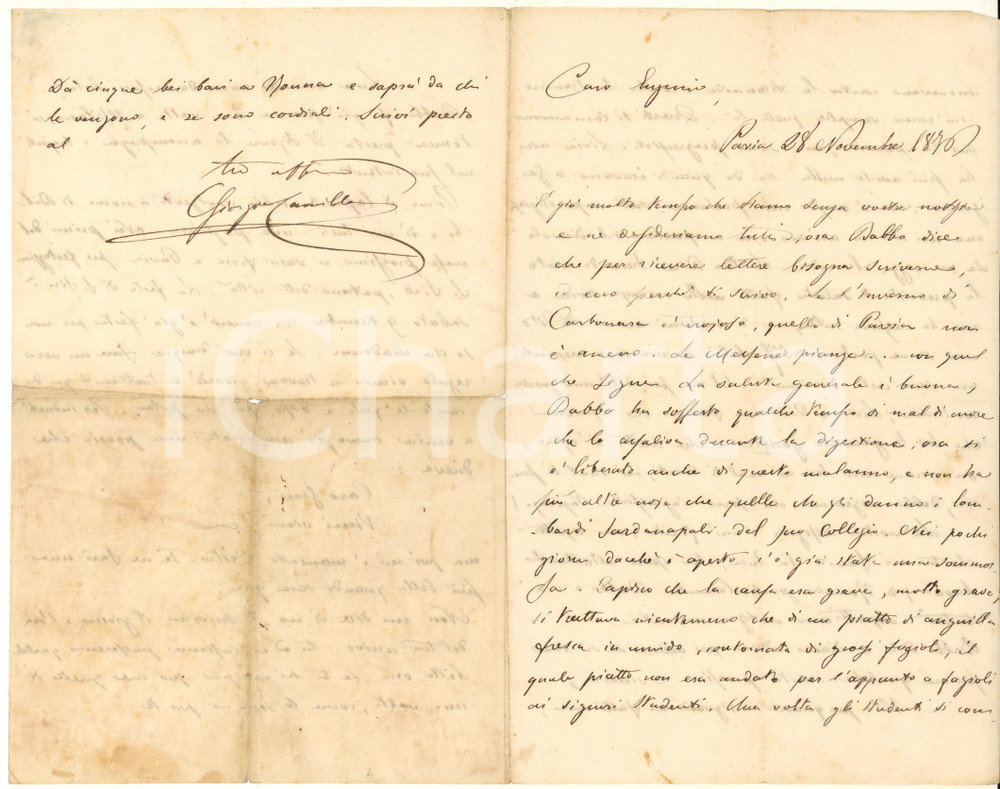 Caro Eugenio,
Pavia 28 Novembre 1876
È già molto tempo che siamo senza vostre notizie
e ne desideriamo tutti, ora Babbo dice
che per ricevere lettere bisogna scriverne,
ed ecco perchè ti scrivo. Se l'inverno di
Carbonara è nojoso, quello di Pavia non
è ameno. Le piange.. con quel
che segue. La salute generale è buona,
Babbo ha sofferto qualche tempo di mal di
che lo assaliva durante la digestione, ora si
è liberato anche di questo malanno, e non ha
più altre noje che quelle che gli danno i lom-
bardi Sardanapali del suo Collegio. Nei pochi
giorni dacchè è aperto c'è già stata una sommos-
sa. Capisco che la causa era grave, molto grave,
si trattava nientemeno che di un piatto di anguilla
fresca in umido, contornata di grossi fagioli, il
quale piatto non era andato per l'appunto a fagioli
ai signori studenti. Una volta gli studenti si com
Dà cinque bei baci a Nonna e saprà da chi
le vengono, e se sono cordiali. Scrivi presto
al
tuo affmo
Camillo
iCharta